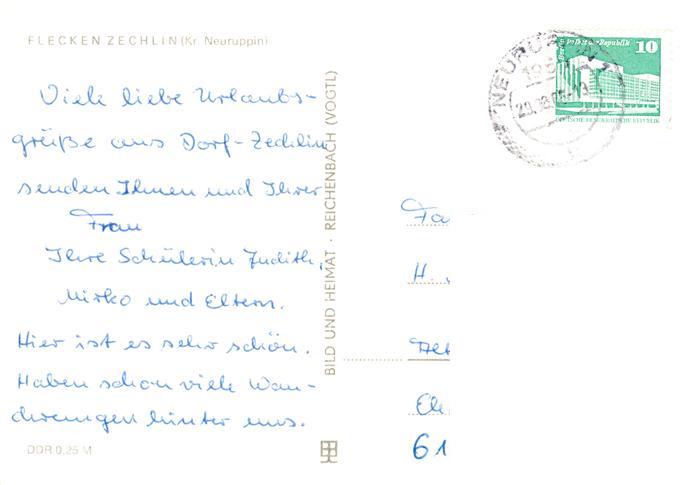 FLECKEN ZECHLIN (Kr. Neuruppin)
Viele liebe Urlaubs-
grüße aus Dorf-Zechlin
senden Ihnen und Ihrer
Frau
Ihre Schülerin Judith,
Mirko und Eltern.
Hier ist es sehr schön.
Haben schon viele Wan-
derungen hinter uns.
DDR 0,25 M
BILD UND HEIMAT · REICHENBACH (VOGTL)
NEURUP
195
Palast der Republik
10
DEUTSCHE DEMOKRATISCHE REPUBLIK
Fa
H.
61